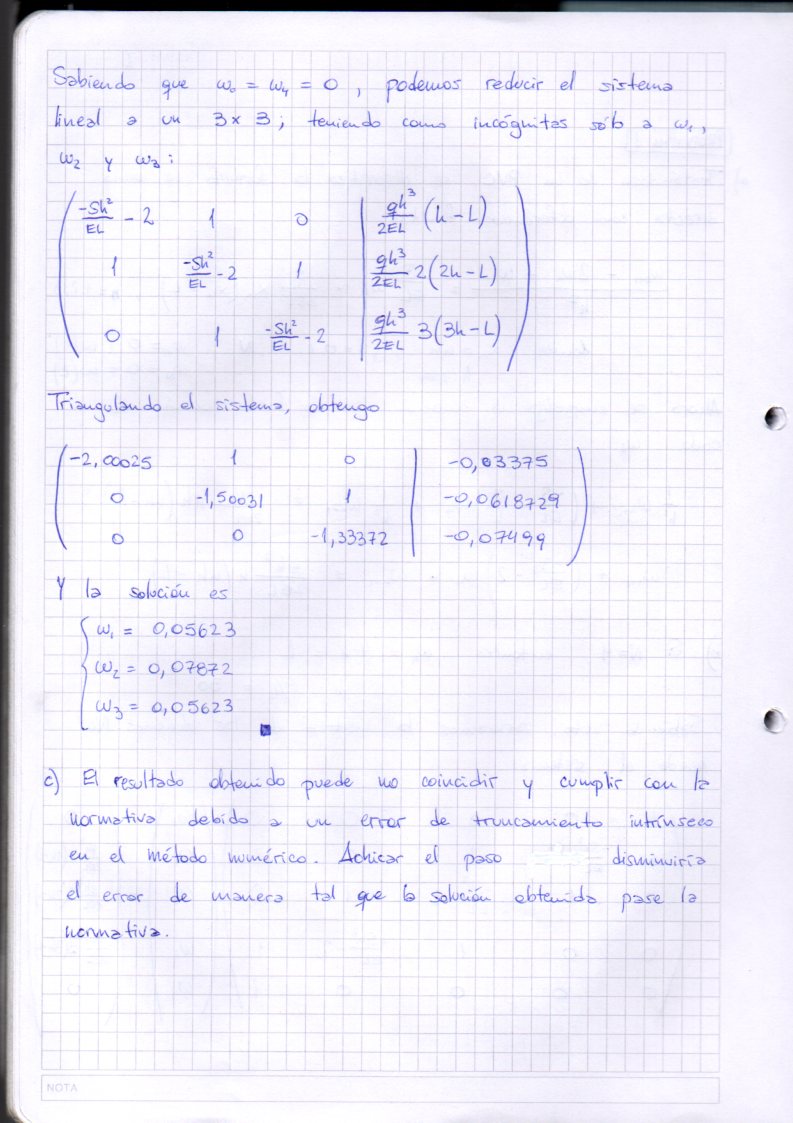 Sabiendo que ω₀ = ω₄ = 0, podemos reducir el sistema
lineal a un 3x3; teniendo como incógnitas sólo a ω₁,
ω₂ y ω₃:
-Sh²/EL - 2 1 0 | qh³/2EL (h - L)
1 -Sh²/EL - 2 1 | qh³/2EL 2(2h - L)
0 1 -Sh²/EL - 2 | qh³/2EL 3(3h - L)
Triangulando el sistema, obtengo
-2,00025 1 0 | -0,03375
0 -1,50031 1 | -0,0618729
0 0 -1,33372 | -0,07499
Y la solución es
ω₁ = 0,05623
ω₂ = 0,07872
ω₃ = 0,05623
c) El resultado obtenido puede no coincidir y cumplir con la
normativa debido a un error de truncamiento intrínseco
en el método numérico. Achicar el paso disminuiría
el error de manera tal que la solución obtenida pase la
normativa.
NOTA